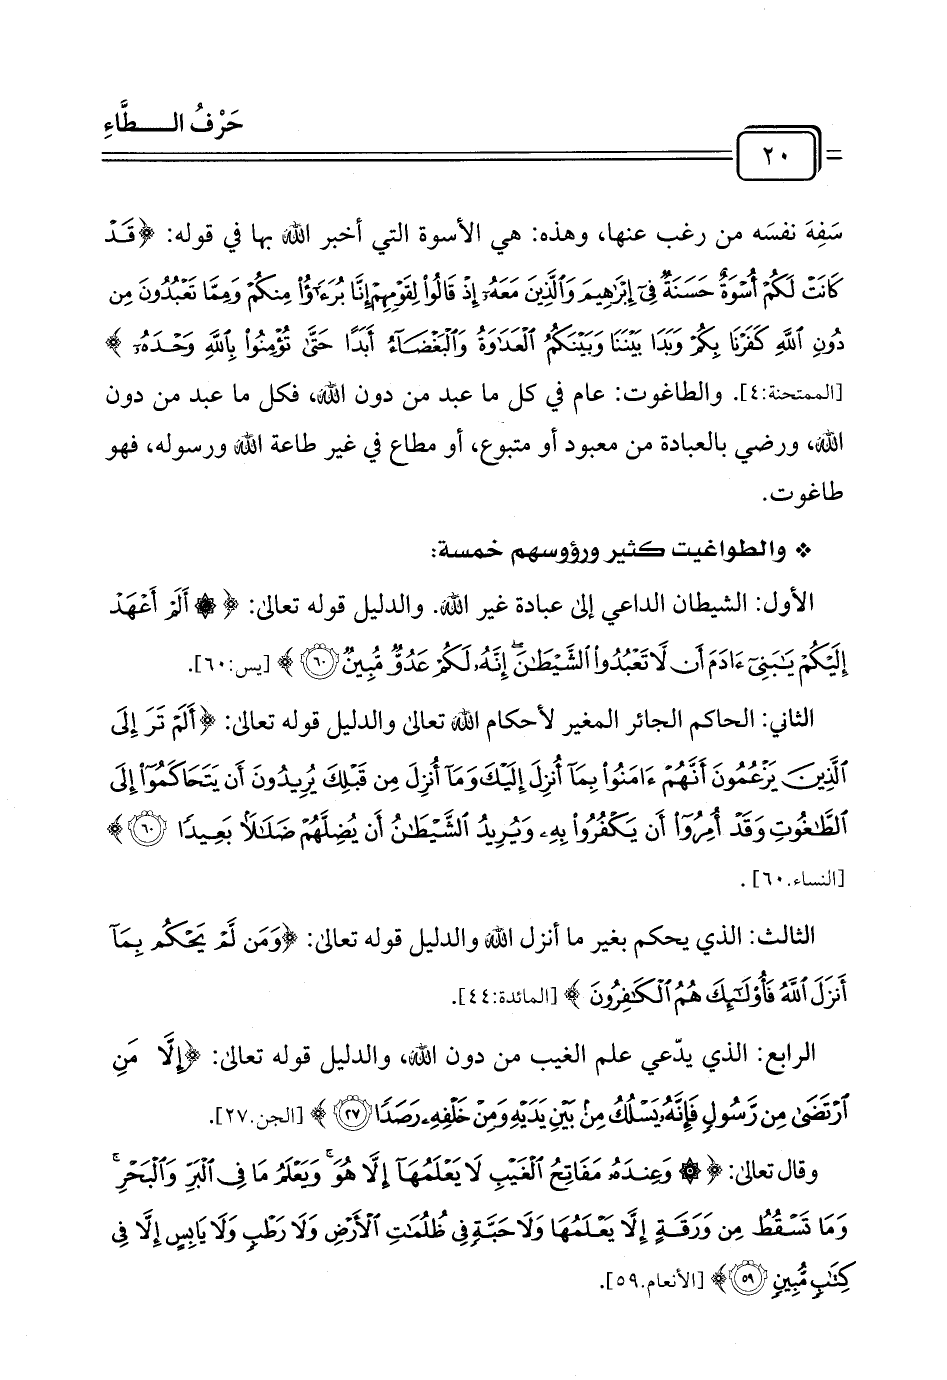 حَرْفُ الـــطَّاءِ
٢٠
سَفِهَ نفسَه من رغب عنها، وهذه: هي الأسوة التي أخبر الله بها في قوله: ﴿قَدْ
كَانَتْ لَكُمْ أُسْوَةٌ حَسَنَةٌ فِىٓ إِبْرَٰهِيمَ وَٱلَّذِينَ مَعَهُۥٓ إِذْ قَالُوا۟ لِقَوْمِهِمْ إِنَّا بُرَءَٰٓؤُا۟ مِنكُمْ وَمِمَّا تَعْبُدُونَ مِن
دُونِ ٱللَّهِ كَفَرْنَا بِكُمْ وَبَدَا بَيْنَنَا وَبَيْنَكُمُ ٱلْعَدَٰوَةُ وَٱلْبَغْضَآءُ أَبَدًا حَتَّىٰ تُؤْمِنُوا۟ بِٱللَّهِ وَحْدَهُۥٓ﴾
[الممتحنة:٤]. والطاغوت: عام في كل ما عبد من دون الله، فكل ما عبد من دون
الله، ورضي بالعبادة من معبود أو متبوع، أو مطاع في غير طاعة الله ورسوله، فهو
طاغوت.
❖ والطواغيت كثير ورؤوسهم خمسة:
الأول: الشيطان الداعي إلىٰ عبادة غير الله. والدليل قوله تعالىٰ: ﴿ ۞ أَلَمْ أَعْهَدْ
إِلَيْكُمْ يَٰبَنِىٓ ءَادَمَ أَن لَّا تَعْبُدُوا۟ ٱلشَّيْطَٰنَ ۖ إِنَّهُۥ لَكُمْ عَدُوٌّ مُّبِينٌ ٦٠ ﴾ [يس:٦٠].
الثاني: الحاكم الجائر المغير لأحكام الله تعالىٰ والدليل قوله تعالىٰ: ﴿أَلَمْ تَرَ إِلَى
ٱلَّذِينَ يَزْعُمُونَ أَنَّهُمْ ءَامَنُوا۟ بِمَآ أُنزِلَ إِلَيْكَ وَمَآ أُنزِلَ مِن قَبْلِكَ يُرِيدُونَ أَن يَتَحَاكَمُوٓا۟ إِلَى
ٱلطَّٰغُوتِ وَقَدْ أُمِرُوٓا۟ أَن يَكْفُرُوا۟ بِهِۦ وَيُرِيدُ ٱلشَّيْطَٰنُ أَن يُضِلَّهُمْ ضَلَٰلًۢا بَعِيدًا ٦٠ ﴾
[النساء.٦٠] .
الثالث: الذي يحكم بغير ما أنزل الله والدليل قوله تعالىٰ: ﴿وَمَن لَّمْ يَحْكُم بِمَآ
أَنزَلَ ٱللَّهُ فَأُو۟لَٰٓئِكَ هُمُ ٱلْكَٰفِرُونَ ﴾ [المائدة:٤٤].
الرابع: الذي يدّعي علم الغيب من دون الله، والدليل قوله تعالىٰ: ﴿إِلَّا مَنِ
ٱرْتَضَىٰ مِن رَّسُولٍ فَإِنَّهُۥ يَسْلُكُ مِنۢ بَيْنِ يَدَيْهِ وَمِنْ خَلْفِهِۦ رَصَدًا ٢٧ ﴾ [الجن.٢٧].
وقال تعالىٰ: ﴿ ۞ وَعِندَهُۥ مَفَاتِحُ ٱلْغَيْبِ لَا يَعْلَمُهَآ إِلَّا هُوَ ۚ وَيَعْلَمُ مَا فِى ٱلْبَرِّ وَٱلْبَحْرِ ۚ
وَمَا تَسْقُطُ مِن وَرَقَةٍ إِلَّا يَعْلَمُهَا وَلَا حَبَّةٍ فِى ظُلُمَٰتِ ٱلْأَرْضِ وَلَا رَطْبٍ وَلَا يَابِسٍ إِلَّا فِى
كِتَٰبٍ مُّبِينٍ ٥٩ ﴾ [الأنعام.٥٩].